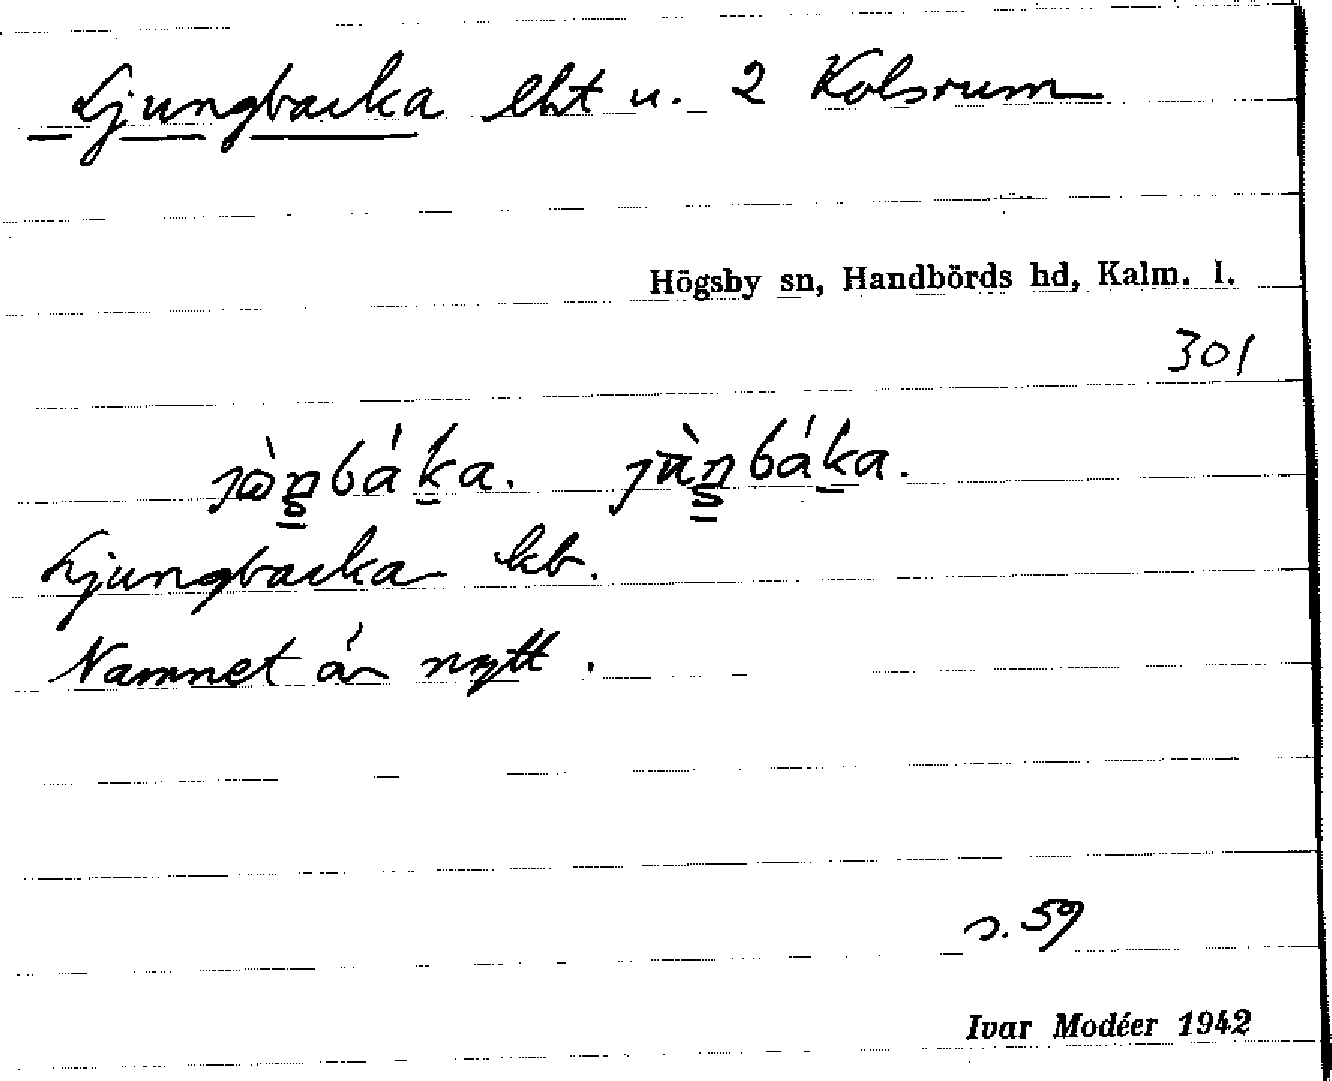 Ljungbacka lht u. 2 Kolsrum
Högsby sn, Handbörds hd, Kalm. l.
301
Ljungbacka kb.
Namnet är nytt.
s. 59
Ivar Modéer 1942